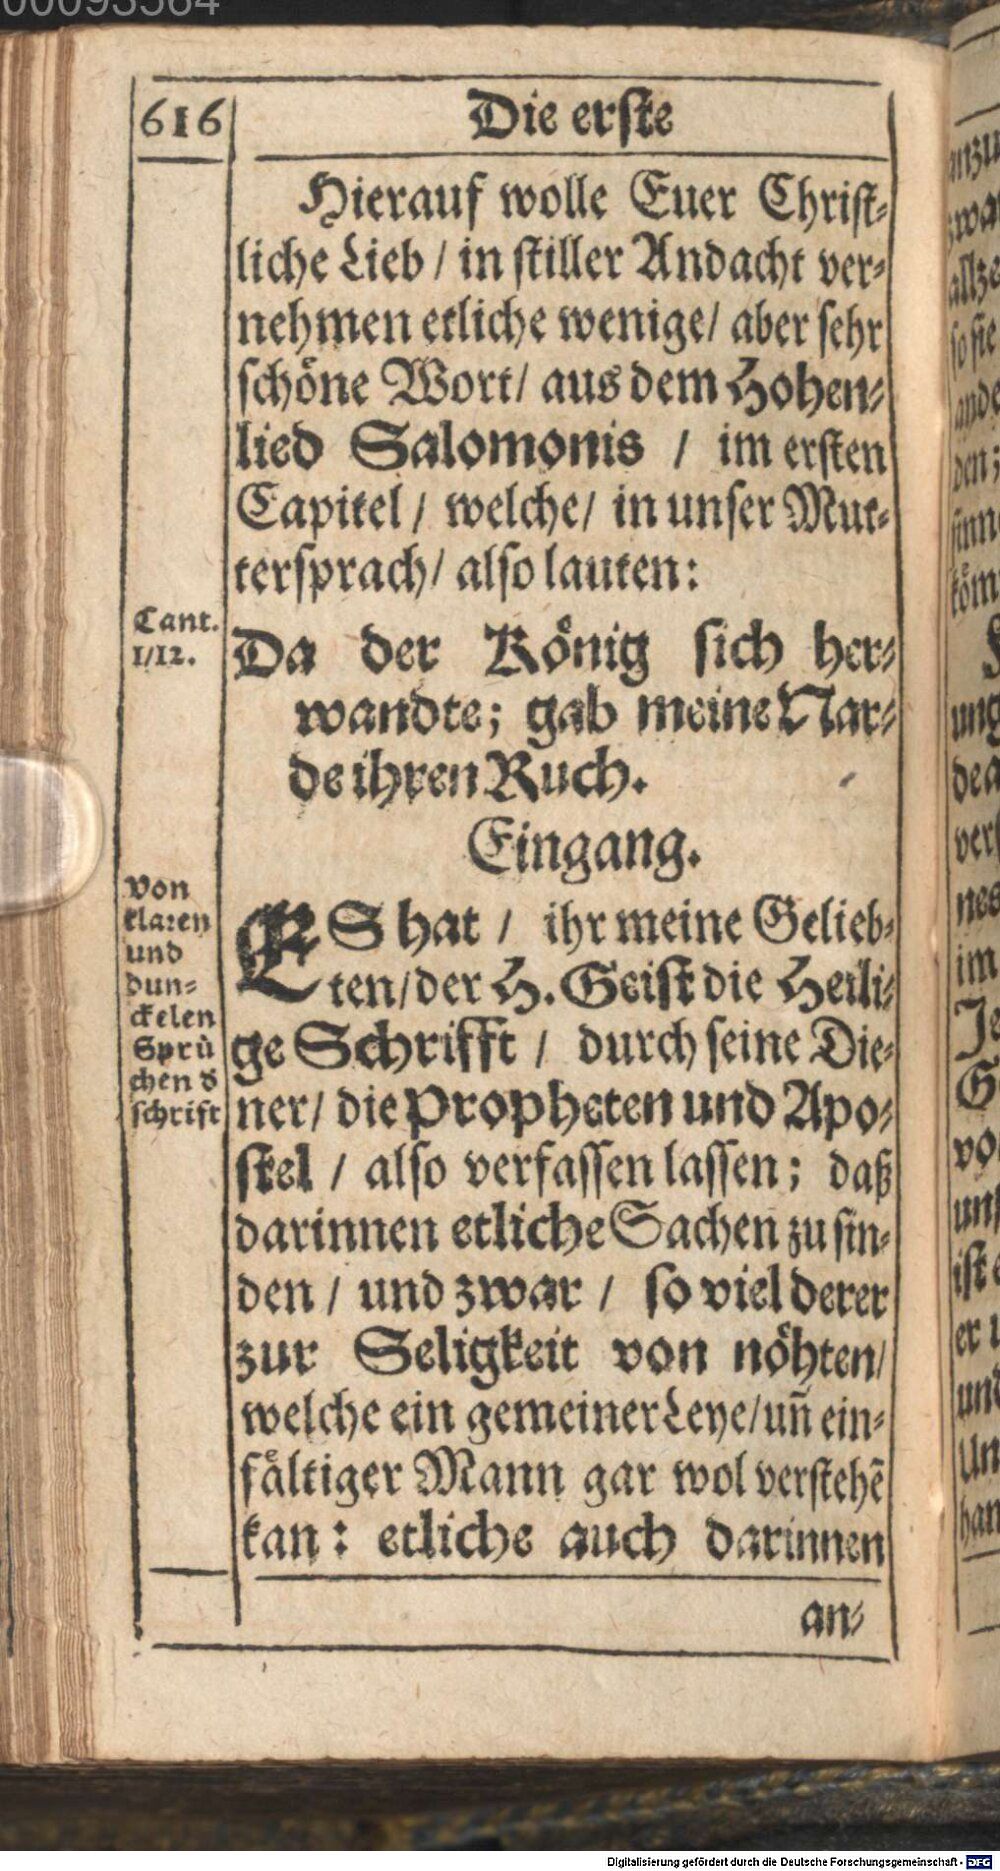 00093564
616
Die erste
Hierauf wolle Euer Christ-
liche Lieb / in stiller Andacht ver-
nehmen etliche wenige / aber sehr
schöne Wort / aus dem Hohen-
lied Salomonis / im ersten
Capitel / welche / in unser Mut-
tersprach / also lauten:
Cant.
1/12.
Da der König sich her-
wandte; gab meine Nar-
de ihren Ruch.
Eingang.
Von
klaren
und
dun-
ckelen
Sprü
chen d
schrift
ES hat / ihr meine Gelieb-
ten / der H. Geist die Heili-
ge Schrifft / durch seine Die-
ner / die Propheten und Apo-
stel / also verfassen lassen; daß
darinnen etliche Sachen zu fin-
den / und zwar / so viel derer
zur Seligkeit von nöhten /
welche ein gemeiner Leye / uñ ein-
fältiger Mann gar wol verstehẽ
kan: etliche auch darinnen
an-
Digitalisierung gefördert durch die Deutsche Forschungsgemeinschaft - DFG